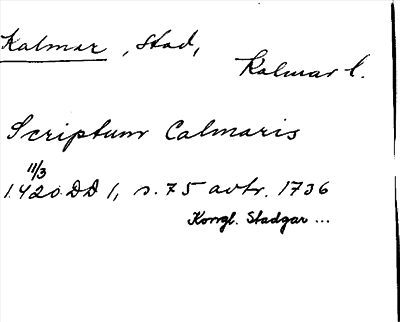 Kalmar, Stad,
Kalmar l.
Scriptum Calmaris
11/3
1420 DD 1, s. 75 avtr. 1736
Kongl. Stadgar ...